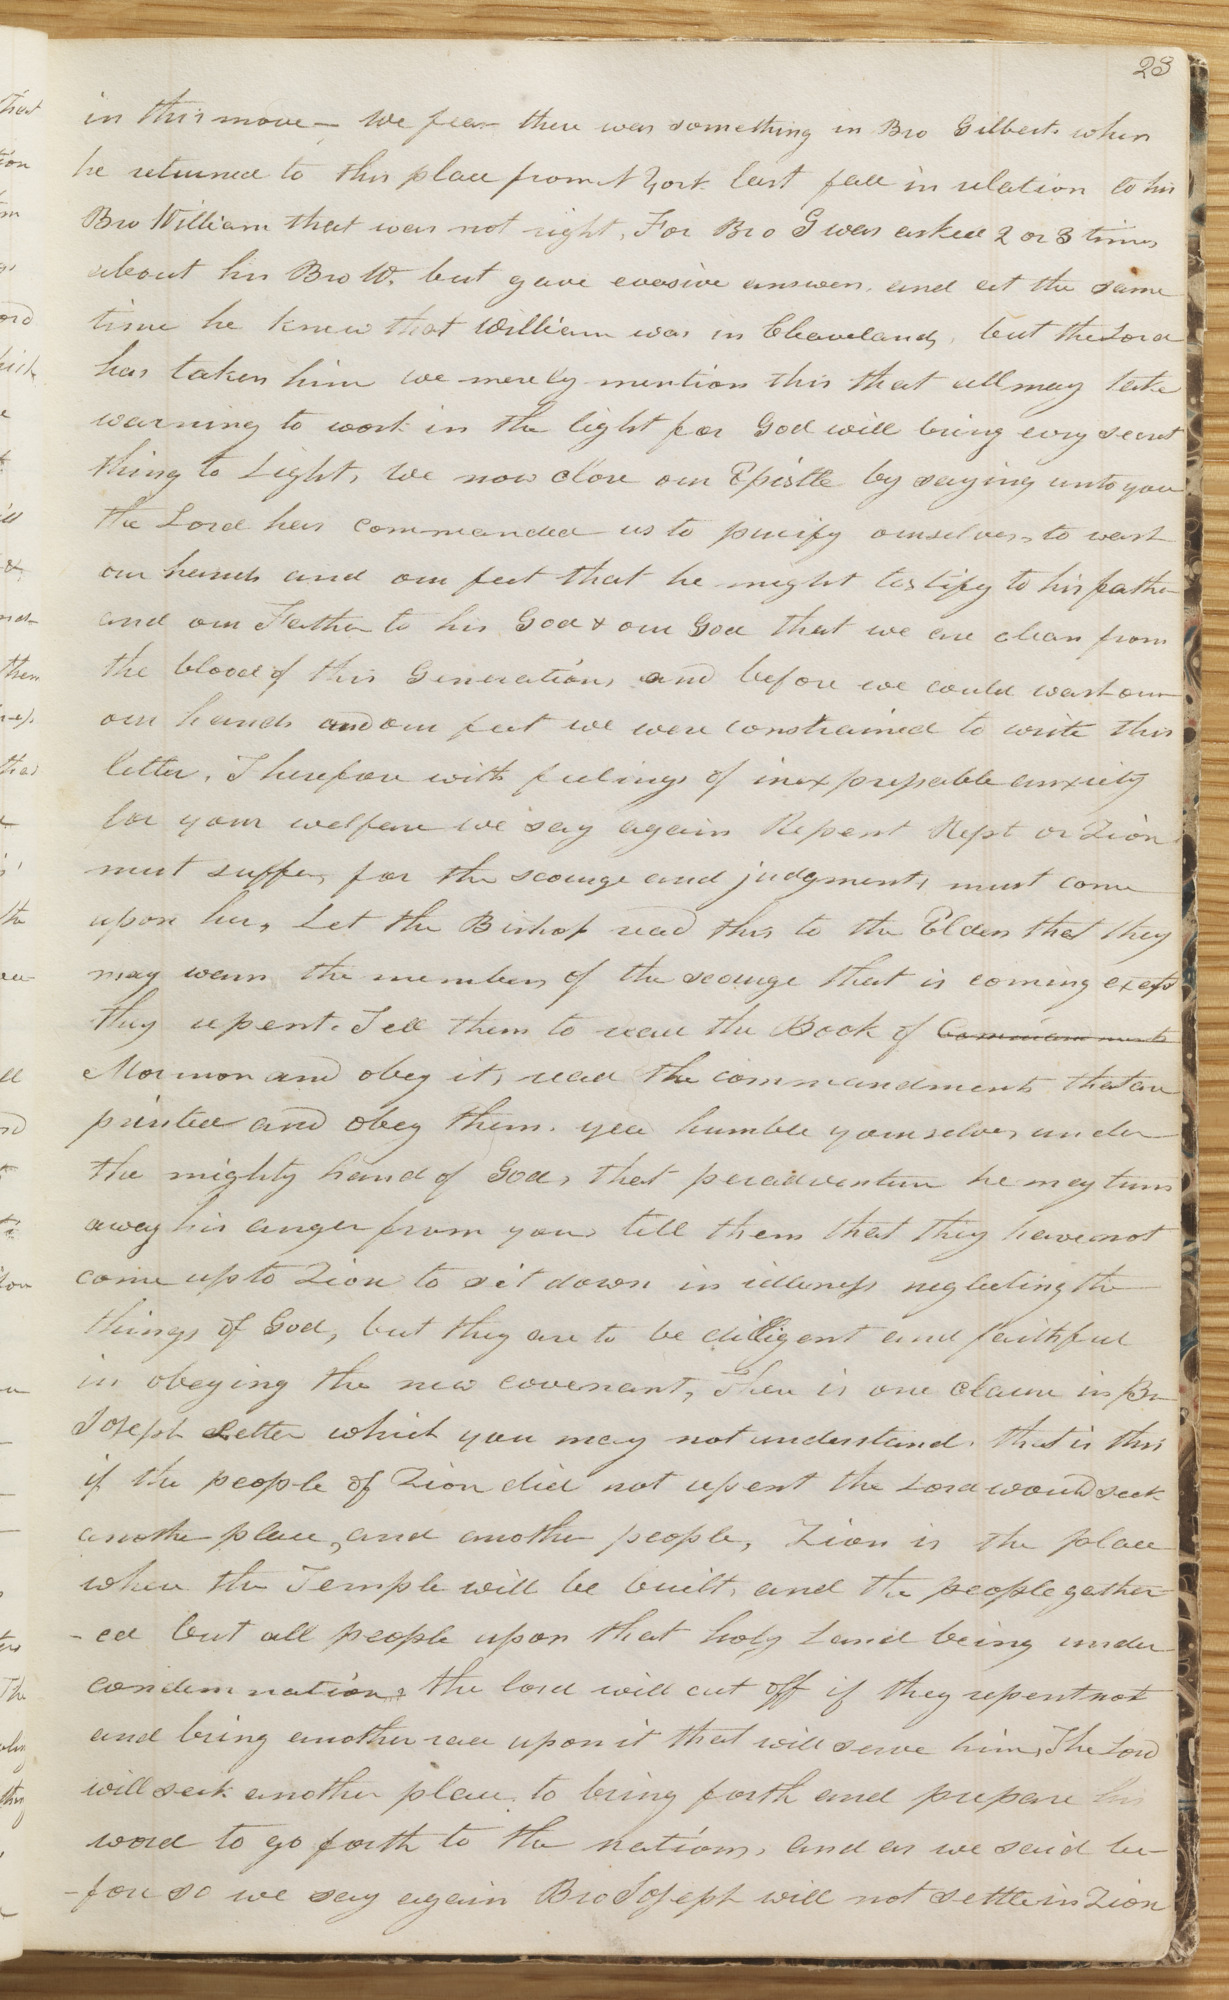 23
in this move — We fear there was something in Bro Gilbert when
he returned to this place from N York last fall in relation to his
Bro William that was not right, For Bro G was asked 2 or 3 times
about his Bro W. but gave evasive answers, and at the same
time he knew that William was in Cleaveland, but the Lord
has taken him we merely mention this that all may take
warning to work in the light for God will bring evry secret
thing to Light, We now close our Epistle by saying unto you
the Lord has commanded us to purify ourselves, to wash
our hands and our feet that he might testify to his father
and our Father to his God & our God that we are clean from
the blood of this Generation, and before we could wash our
our hands and our feet we were constrained to write this
letter, Therefore with feelings of inexpressable anxiety
for your welfare we say again Repent Rept or Zion
must suffer, for the scourge and judgments must come
upon her, Let the Bishop read this to the Elders that they
may warn the members of the scourge that is coming except
they repent. Tell them to read the Book of Commandments
Mormon and obey it, read the commandments that are
printed and obey them. yea humble yourselves under
the mighty hand of God, that peradventure he may turn
away his anger from you, tell them that they have not
come up to Zion to sit down in idleness neglecting the
things of God, but they are to be dilligent and faithful
in obeying the new covenant, There is one clause in Br
Joseph Letter which you may not understand. that is this
if the people of Zion did not repent the Lord would seek
another place, and another people, Zion is the place
where the Temple will be built, and the people gather-
-ed but all people upon that holy Land being under
condemnation, the lord will cut off if they repent not
and bring another race upon it that will serve him, The Lord
will seek another place to bring forth and prepare his
word to go forth to the nations, and as we said be-
-fore so we say again Bro Joseph will not settle in Zion